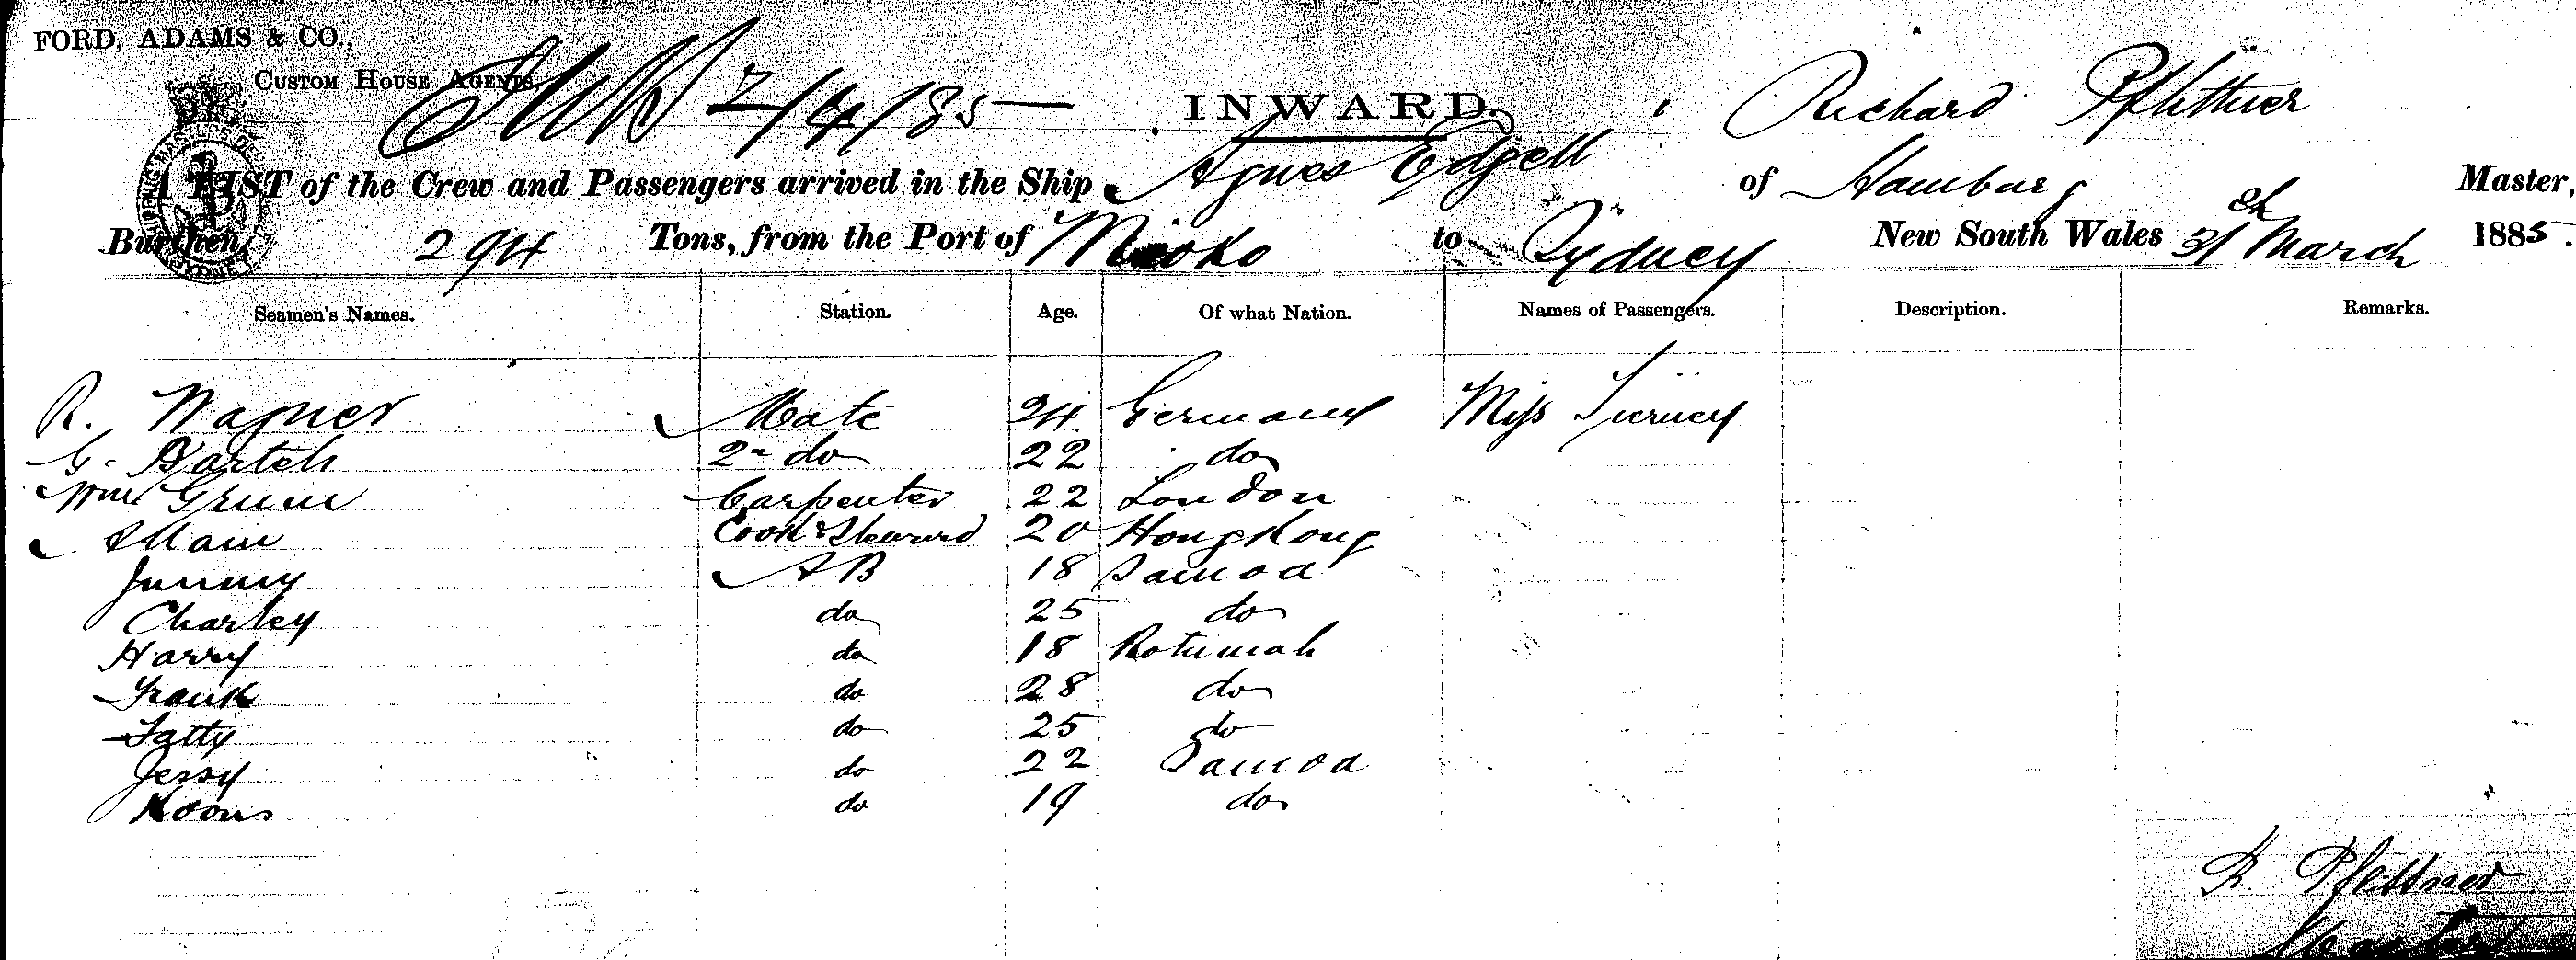 FORD, ADAMS & CO.,
CUSTOM HOUSE AGENTS.
2/4/85 —
INWARD.
Richard Pflittner
LIST of the Crew and Passengers arrived in the Ship Agnes Edgell of Hamburg Master,
Burthen, 294 Tons, from the Port of Mioko to Sydney New South Wales 31st March 1885.
Seamen's Names. Station. Age. Of what Nation. Names of Passengers. Description. Remarks.
R. Wagner Mate 24 Germany Miss Tierney
G. Bartch 2 do 22 do
Wm Carpenter 22 London
Cook & Steward 20 HongKong
Jimmy AB 18 Samoa
Charley do 25 do
Harry do 18 Rotumah
Frank do 28 do
Fatty do 25 do
Jessy do 22 Samoa
do 19 do
R. Pflittner
Master